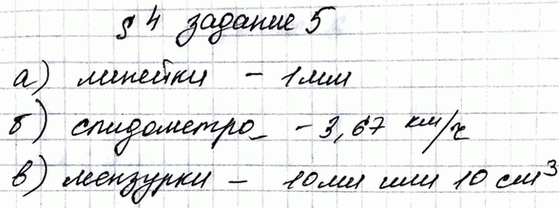 § 4 задание 5
а) линейки - 1мм
б) спидометра - 3,67 км/ч
в) мензурки - 10мл или 10 см³